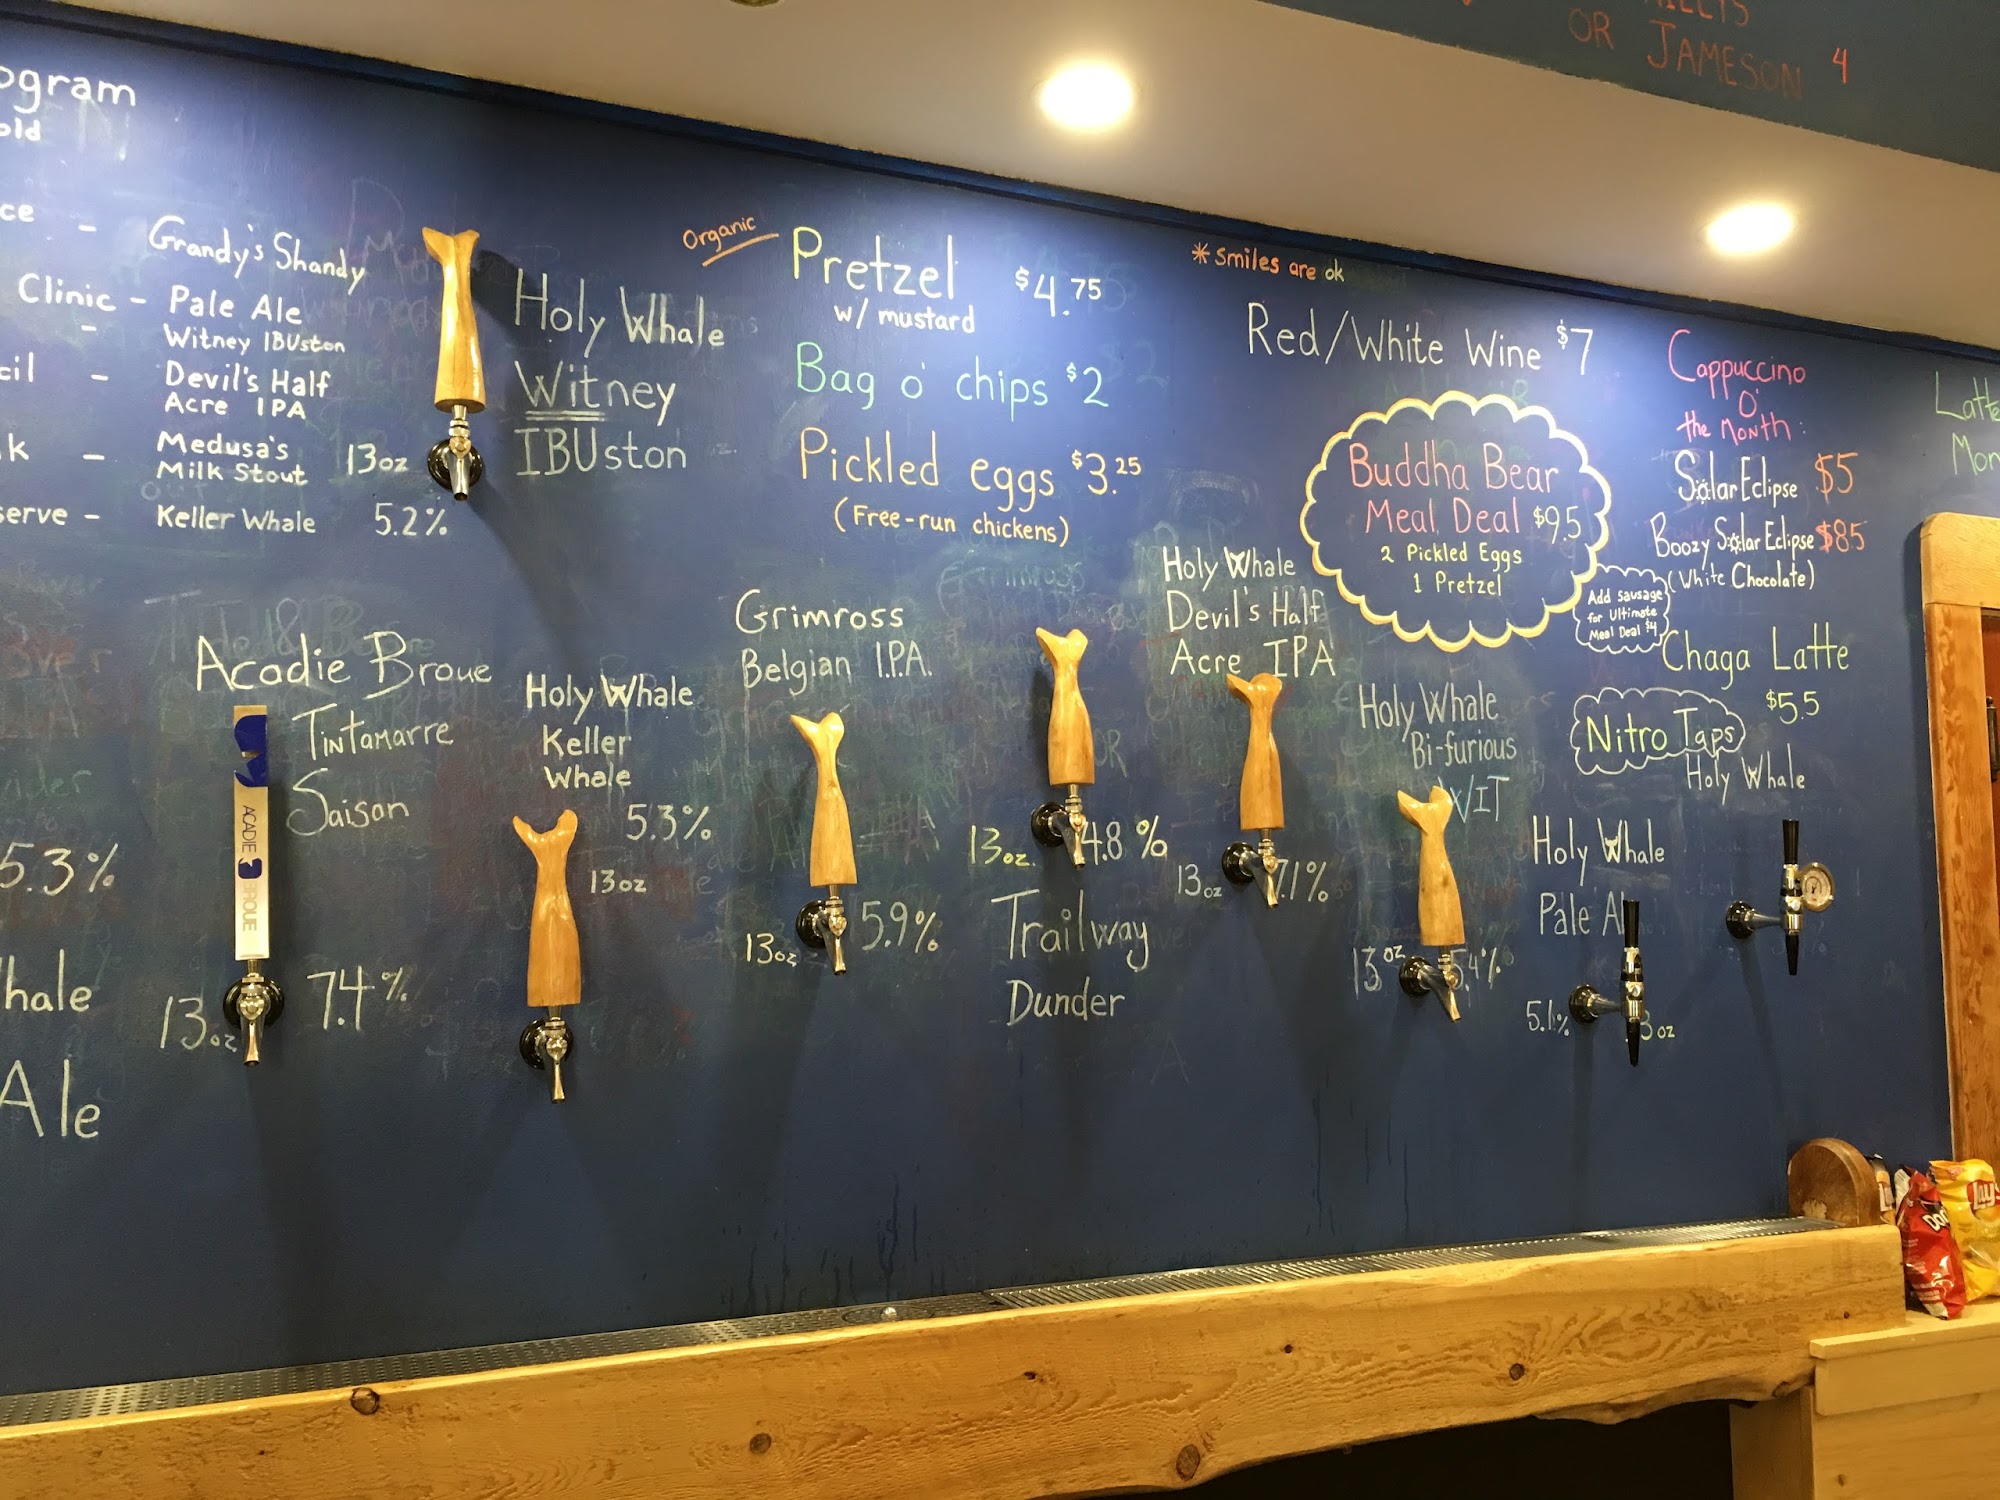 OR JAMESON 4
ogram
old
ce - Grandy's Shandy
Clinic - Pale Ale
- Witney IBUston
cil - Devil's Half
Acre IPA
k - Medusa's
Milk Stout
serve - Keller Whale
13oz
5.2%
Holy Whale
Witney
IBUston
Organic
Pretzel $4.75
w/ mustard
Bag o' chips $2
Pickled eggs $3.25
(Free-run chickens)
* Smiles are ok
Red/White Wine $7
Buddha Bear
Meal Deal $9.5
2 Pickled Eggs
1 Pretzel
Add sausage
for Ultimate
Meal Deal $4
Cappuccino
O'
the Month:
Solar Eclipse $5
Boozy Solar Eclipse $85
(White Chocolate)
Chaga Latte
$5.5
Latte
Mon
Nitro Taps
Holy Whale
5.3%
hale
Ale
Acadie Broue
Tintamarre
Saison
ACADIE BROUE
13oz
7.4%
Holy Whale
Keller
Whale
5.3%
13oz
Grimross
Belgian I.P.A.
13oz
5.9%
13oz. 4.8%
Trailway
Dunder
Holy Whale
Devil's Half
Acre IPA
13oz 7.1%
Holy Whale
Bi-furious
WIT
13oz 5.4%
Holy Whale
Pale Al
5.1% 3oz
Lay's